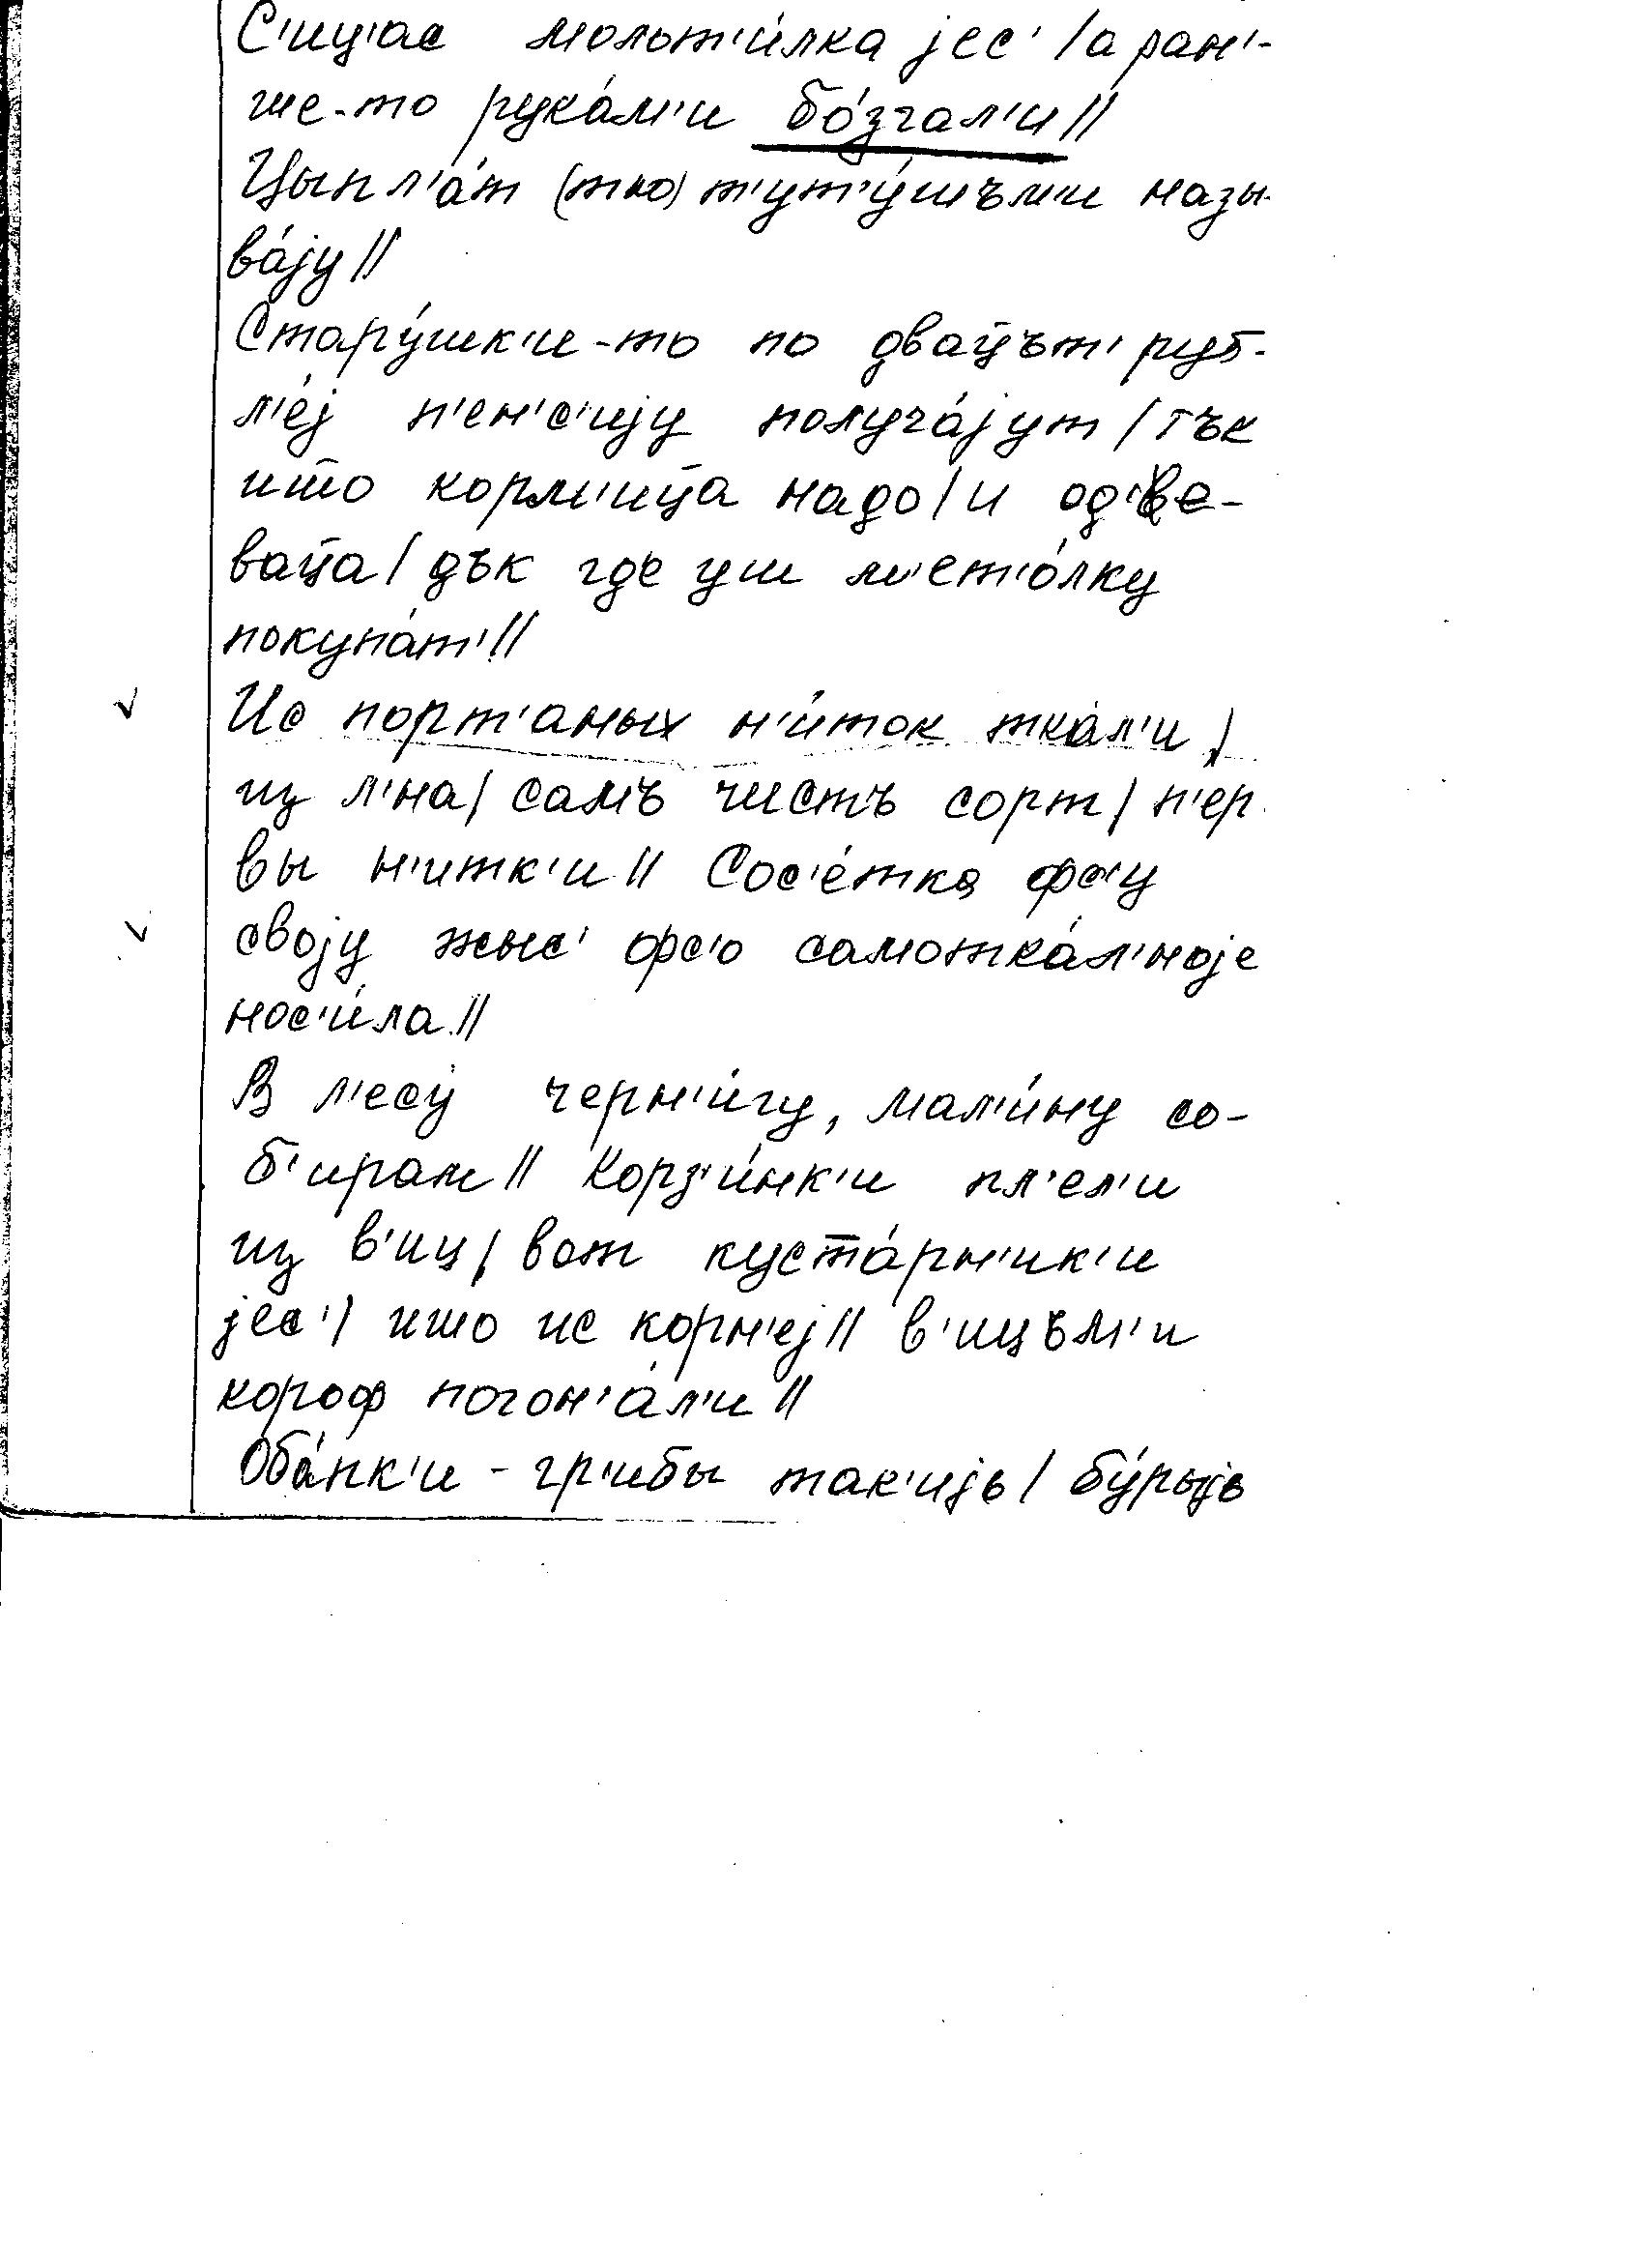 С'иц'ас молот'и́лка јес' / а ран'-
ше-то рука́м'и бо́згал'и //
Цыпл'а́т (тко) т'ут'у́шъм'и назы-
ва́ју //
Стару́шк'и-то по двац̄ът' руб-
л'е́ј п'ен'с'ију получа́јут / тък
што корм'иц̄а надо / и од'ве-
вац̄а / дък где уш м'ет'о́лку
покупа́т' //
Ис порт'аных н'и́ток тка́л'и /
из л'на / самъ чистъ сорт / п'ер
вы н'итк'и // Сос'е́тка фс'у
својy жыс' фс'о самотка́л'ноје
нос'и́ла //
В л'есу́ черн'и́гу, мал'и́ну со-
б'ирам // Корз'и́нк'и пл'ел'и
из в'иц / вот куста́рн'ик'и
јес' / ишо ис корн'еј // в'ицъм'и
короф погон'а́л'и //
Оба́пк'и - гр'ибы так'ијь / бу́рыјь